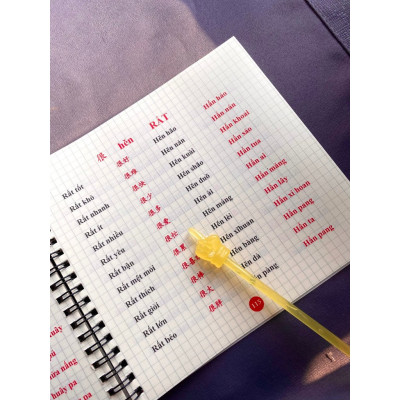 很 hěn RẤT
Rất tốt 很好 Hěn hǎo Hẩn hảo
Rất khó 很难 Hěn nán Hẩn nán
Rất nhanh 很快 Hěn kuài Hẩn khoai
Rất ít 很少 Hěn shǎo Hẩn sảo
Rất nhiều 很多 Hěn duō Hẩn tua
Rất yêu 很爱 Hěn ài Hẩn ai
Rất bận 很忙 Hěn máng Hẩn máng
Rất mệt mỏi 很 Hěn lèi Hẩn lây
Rất thích 很喜 Hěn xǐhuan Hẩn xỉ hoan
Rất giỏi 很棒 Hěn bàng Hẩn pang
Rất lớn 很大 Hěn dà Hẩn ta
Rất béo 很胖 pàng Hẩn pang
huây pa
113